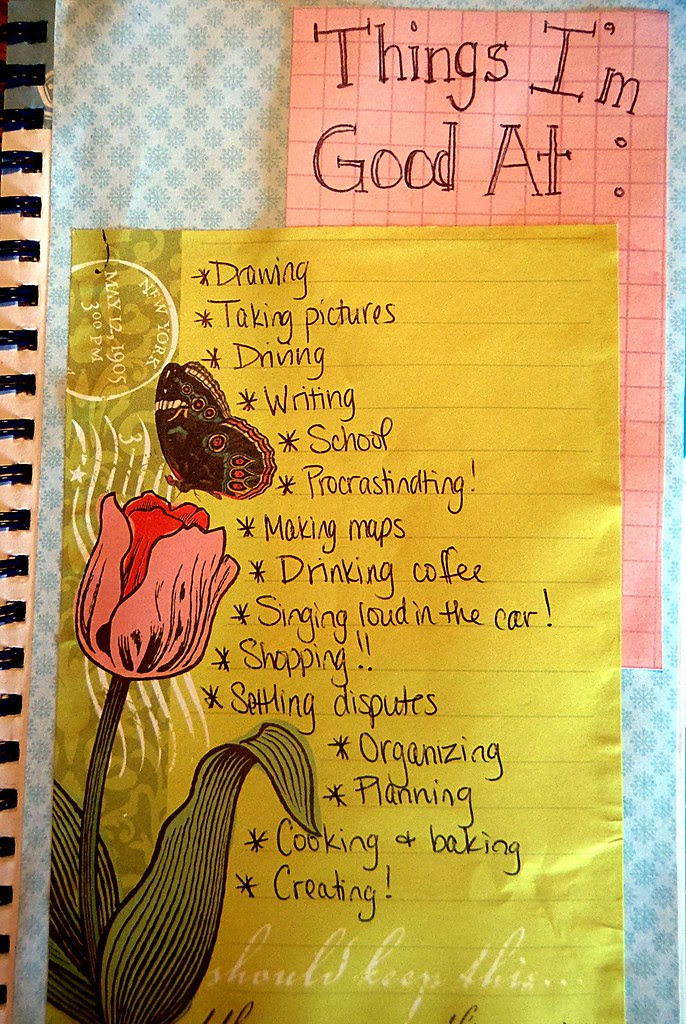 Things I'm
Good At :
NEW YORK
MAY 12, 1905
3 00 PM
3
*Drawing
*Taking pictures
* Driving
* Writing
* School
* Procrastindting!
* Making maps
* Drinking coffee
* Singing loud in the car!
* Shopping!!
* Settling disputes
* Organizing
* Planning
* Cooking & baking
* Creating!
should keep this...